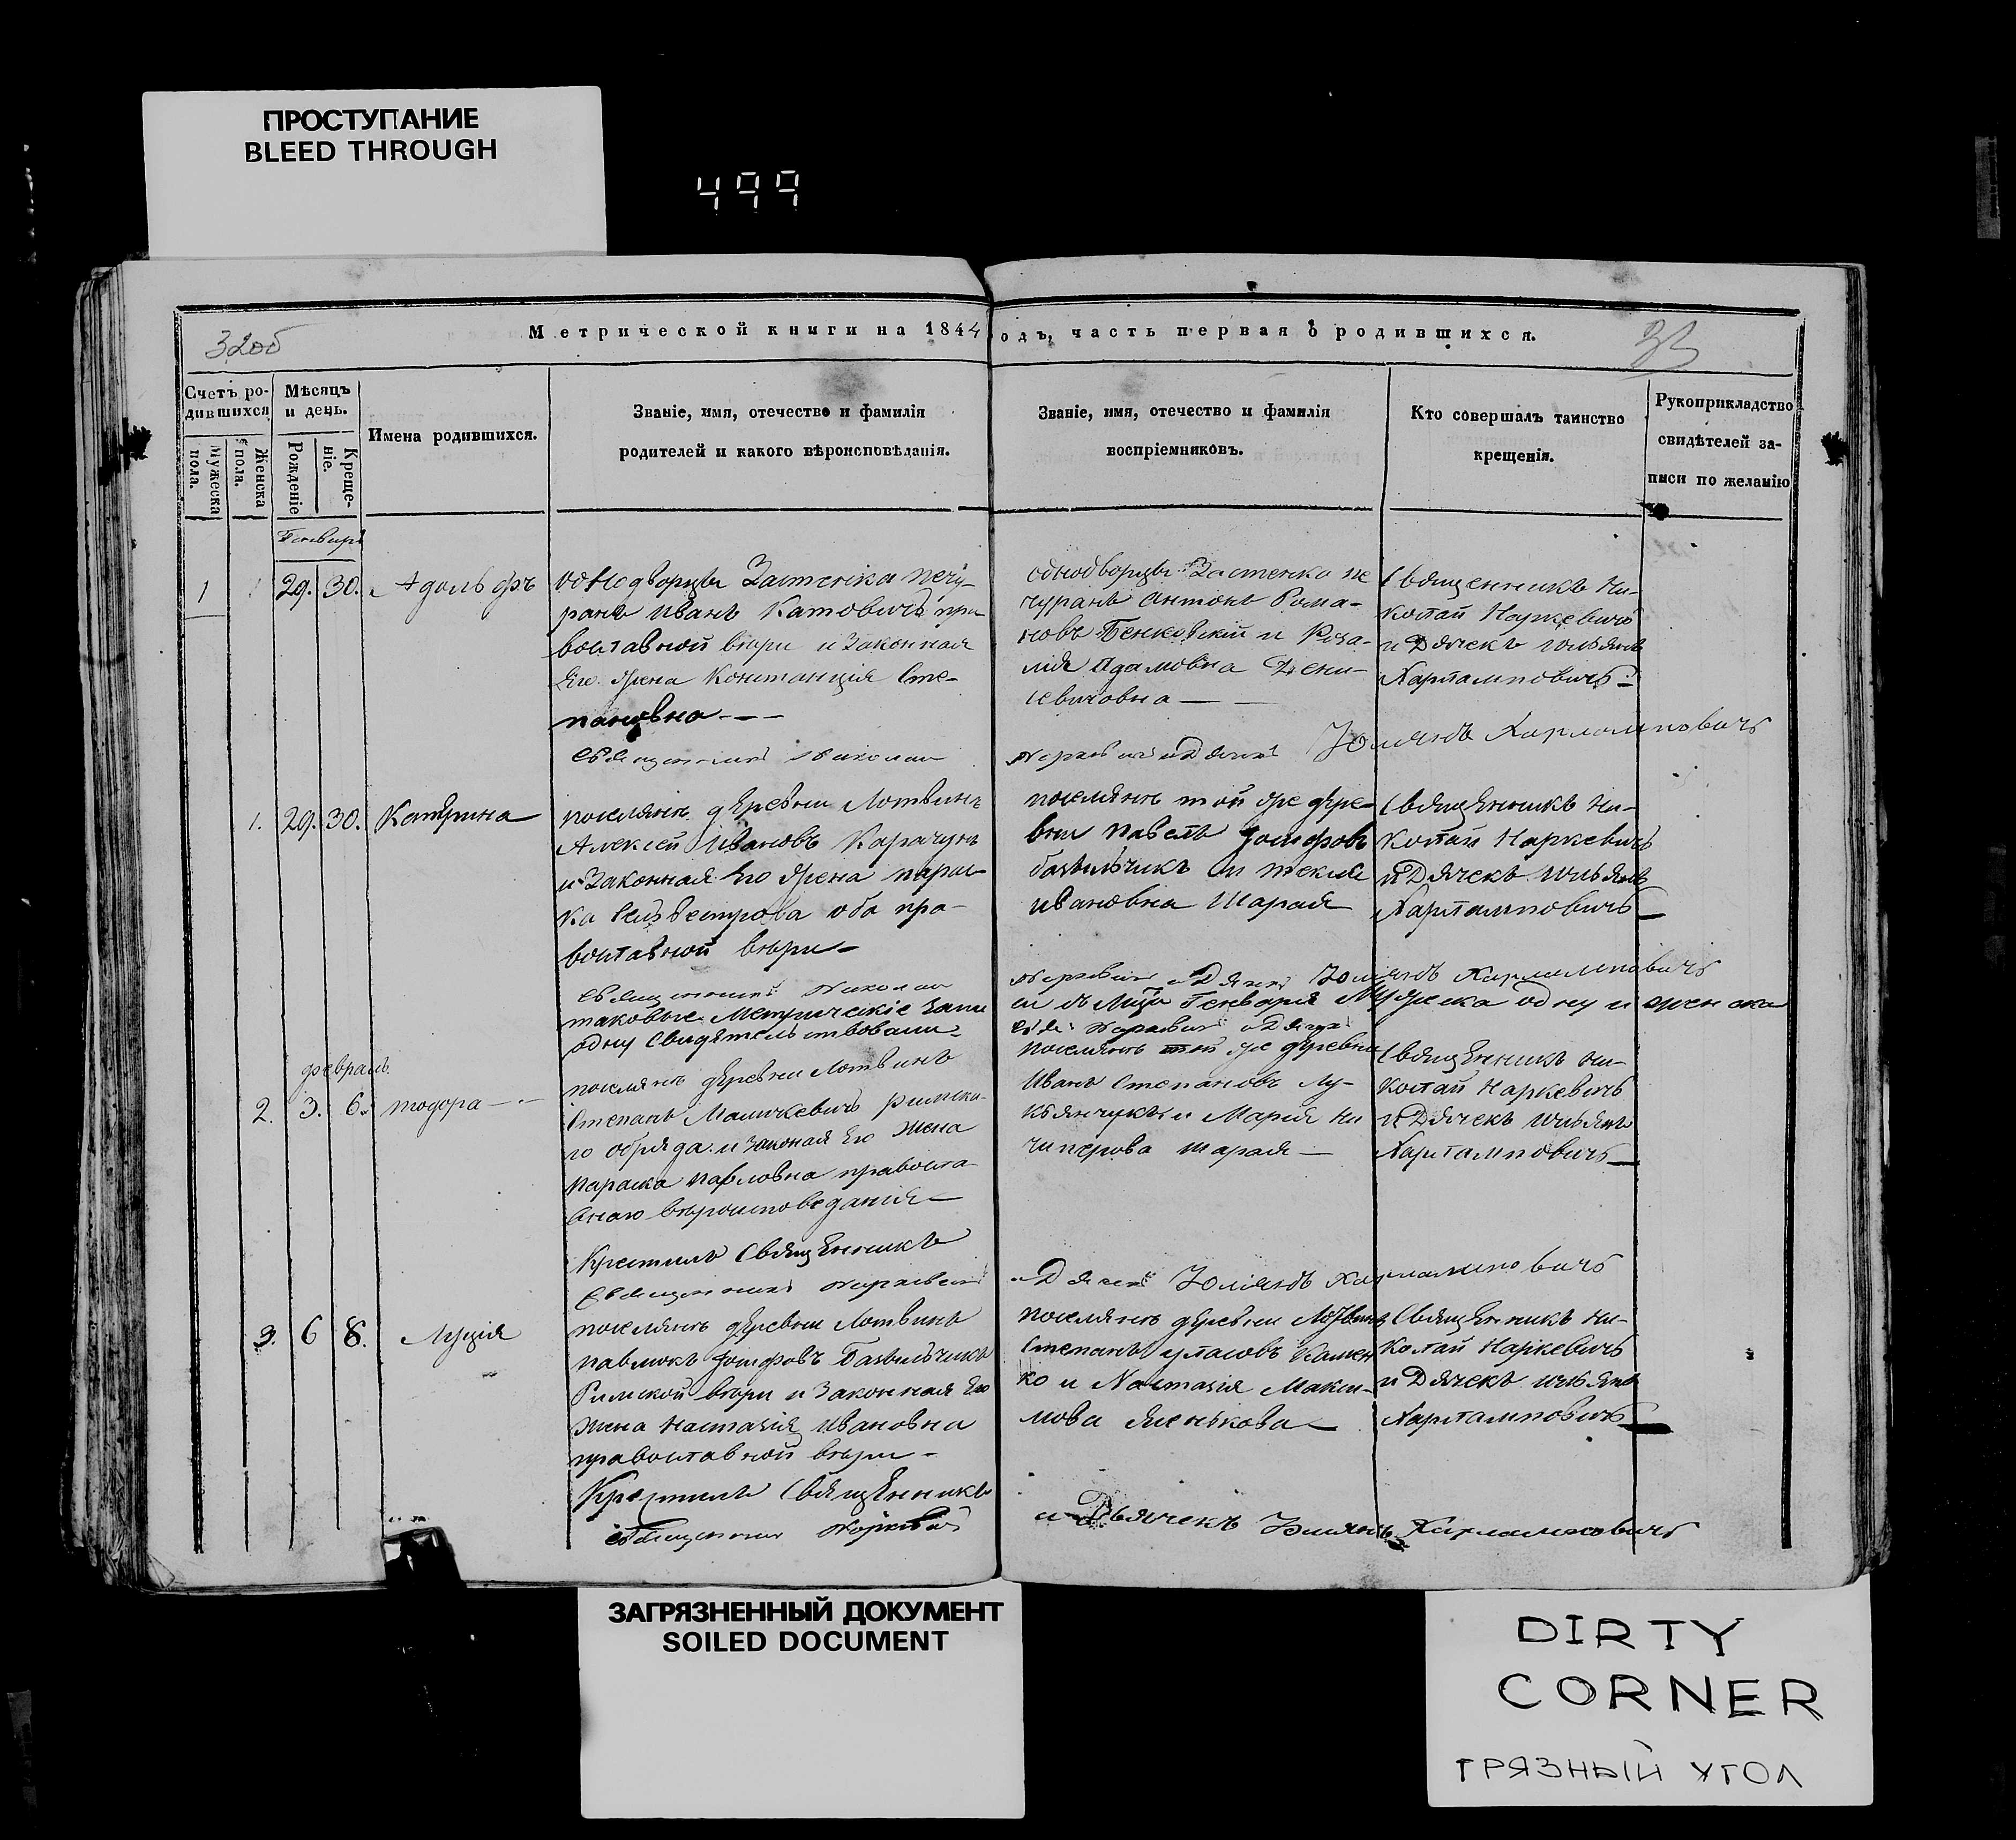 ПРОСТУПАНИЕ
BLEED THROUGH
499
32об
Метрической книги на 1844
одъ, часть первая о родившихся.
33
Счетъ ро-
дившихся
Мужеска
пола.
Женска
пола.
Мѣсяцъ
и день.
Рожденіе
Креще-
ніе.
Имена родившихся.
Званіе, имя, отечество и фамилія
родителей и какого вѣроисповѣданія.
Званіе, имя, отечество и фамилія
воспріемниковъ.
Кто совершалъ таинство
крещенія.
Рукоприкладство
свидѣтелей за-
писи по желанію
Генваръ
1
29. 30.
Адольфъ
однодворцы Застенка Печу-
ранъ Иванъ Катовичъ пра-
вославной вѣри и Законная
Его Жена Констанція Сте-
пановна
Священникъ Николай
однодворцы Застенка Пе
чуранъ Антонъ Рома-
новъ Бенковскій и Роза-
лия Адамовна Дени-
севичовна
Наркевичъ и Дячекъ Юлианъ Харлампович
Священникъ Ни-
колай Наркевичъ
и Дячекъ Юльянъ
Харлампович
1. 29. 30. Катерина
поселянъ деревни Лотвинъ
Алексей Ивановъ Карачунъ
и Законная Его Жена парас-
ка Селвестрова оба пра-
вославной вѣри
Священникъ Николай
поселянъ той же дере-
вни Павелъ Іосифовъ
базыльчикъ и текля
Ивановна Шарая
Наркевичъ и Дячекъ Юлианъ Харлампович
Священникъ Ни-
колай Наркевичъ
и Дячекъ Юльянъ
Харлампович
таковые Метрическіе Запи
си въ Мцѣ Генварѣ Мужеска одну и женска
одну Свидетельствовали
Февраль
2. 3. 6. тодора
поселянъ деревни Лотвинъ
Степанъ Машкевичъ римска-
го обряда и Законая Его Жена
Параска Павловна православ
внаго вѣроисповеданія
Крестилъ Священникъ
Священникъ Наркевичъ
поселянъ той же деревни
Иванъ Степановъ Лу-
кьянчукъ и Мария Ни
чиперова шарая
и Дячекъ Юлианъ Харлампович
Священникъ Ни-
колай Наркевичъ
и Дячекъ Юльянъ
Харлампович
3. 6 8. Луція
поселянъ деревни Лотвинъ
павлюкъ Іосифовъ Базыльчикъ
Римской вѣри и Законная Его
Жена Настазія Ивановна
православной вѣри
Крестилъ Священникъ
Священникъ Наркевичъ
поселянъ деревни Лотвинъ
Степанъ Уласовъ Камен
ко и Настазія Макси-
мова Яенькова
и Дьячекъ Юлианъ Харлампович
Священникъ Ни-
колай Наркевичъ
и Дячекъ Юльянъ
Харлампович
ЗАГРЯЗНЕННЫЙ ДОКУМЕНТ
SOILED DOCUMENT
DIRTY
CORNER
ГРЯЗНЫЙ УГОЛ